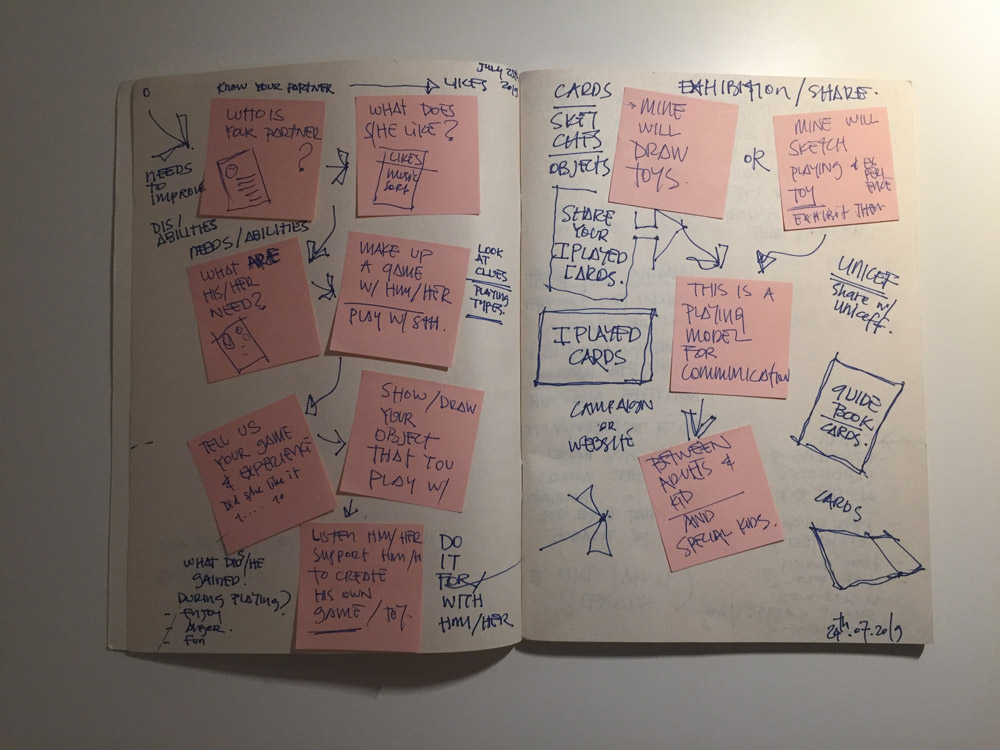 KNOW YOUR PARTNER
LIKES
2019
NEEDS
TO
IMPROVE
DIS/
ABILITIES
WHO IS
YOUR PARTNER
?
WHAT DOES
S/HE LIKE?
LIKES
MUSIC
NEEDS/ABILITIES
WHAT ARE
HIS/HER
NEED?
MAKE UP
A GAME
W/ HIM/HER
PLAY W/ STH.
LOOK
AT
CLUES
PLAYING
TYPES.
TELL US
YOUR GAME
& EXPERIENCE
Did s/he like it
1.... 10
SHOW/DRAW
YOUR
OBJECT
THAT YOU
PLAY W/
LISTEN HIM/HER
SUPPORT HIM/H
TO CREATE
HIS OWN
GAME / TOY.
WHAT DID S/HE
GAINED!
DURING PLAYING?
- ENJOY
- Anger.
- Fun
DO
IT
FOR/
WITH
HIM/HER
CARDS
SKET
CHES
OBJECTS
EXHIBITION/SHARE.
MINE
WILL
DRAW
TOYS.
OR
MINE WILL
SKETCH
PLAYING & EX
PERI
ENCE
TOY
EXHIBIT THEM
SHARE
YOUR
I PLAYED
CARDS.
I PLAYED
CARDS
CAMPAIGN
OR
WEBSITE
THIS IS A
PLAYING
MODEL
FOR
COMMUNICATION
UNICEF
Share w/
Uniceff.
GUIDE
BOOK
CARDS.
BETWEEN
ADULTS &
KID
AND
SPECIAL KIDS.
CARDS
24th.07.2019